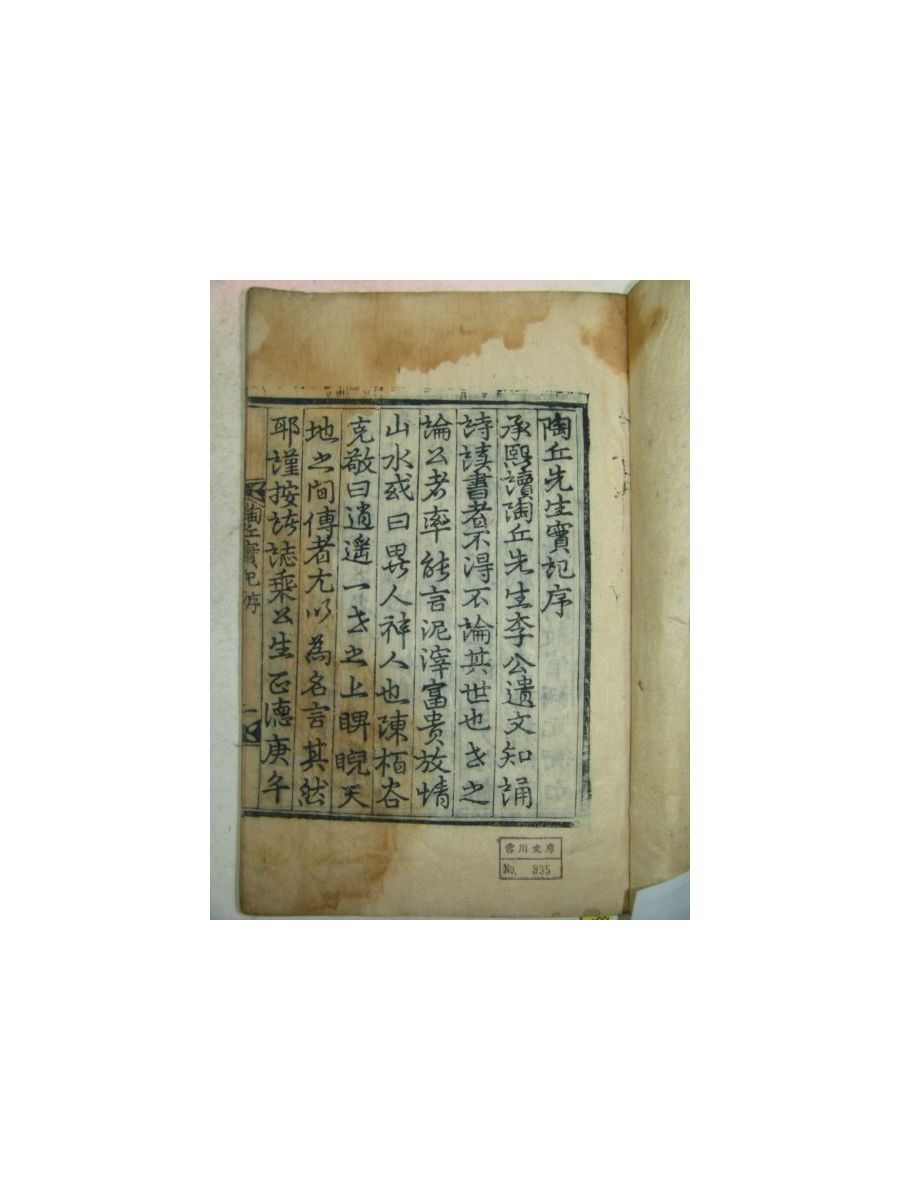 陶丘先生實記序
承熙讀陶丘先生李公遺文知誦
詩讀書者不得不論其世也世之
論公者率能言泥滓富貴放情
山水或曰異人神人也陳栢谷
克敬曰逍遥一世之上睥睨天
地之間傳者尤以為名言其然
耶謹按誌乘公生正德庚午
陶丘實記序
一
雲川文庫
No. 935